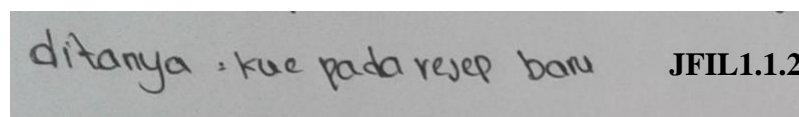 ditanya : kue pada resep baru JFIL1.1.2